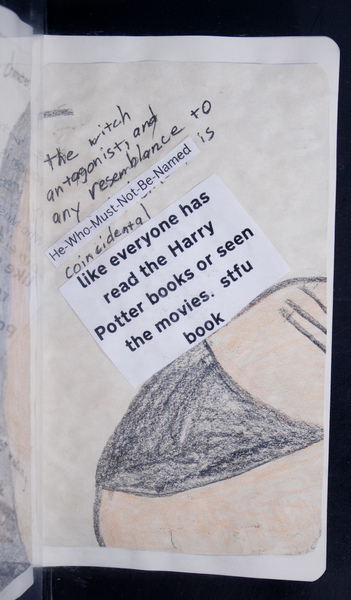 the witch
antagonist, and
any resemblance to
is
He-Who-Must-Not-Be-Named
coincidental
like everyone has
read the Harry
Potter books or seen
the movies. stfu
book